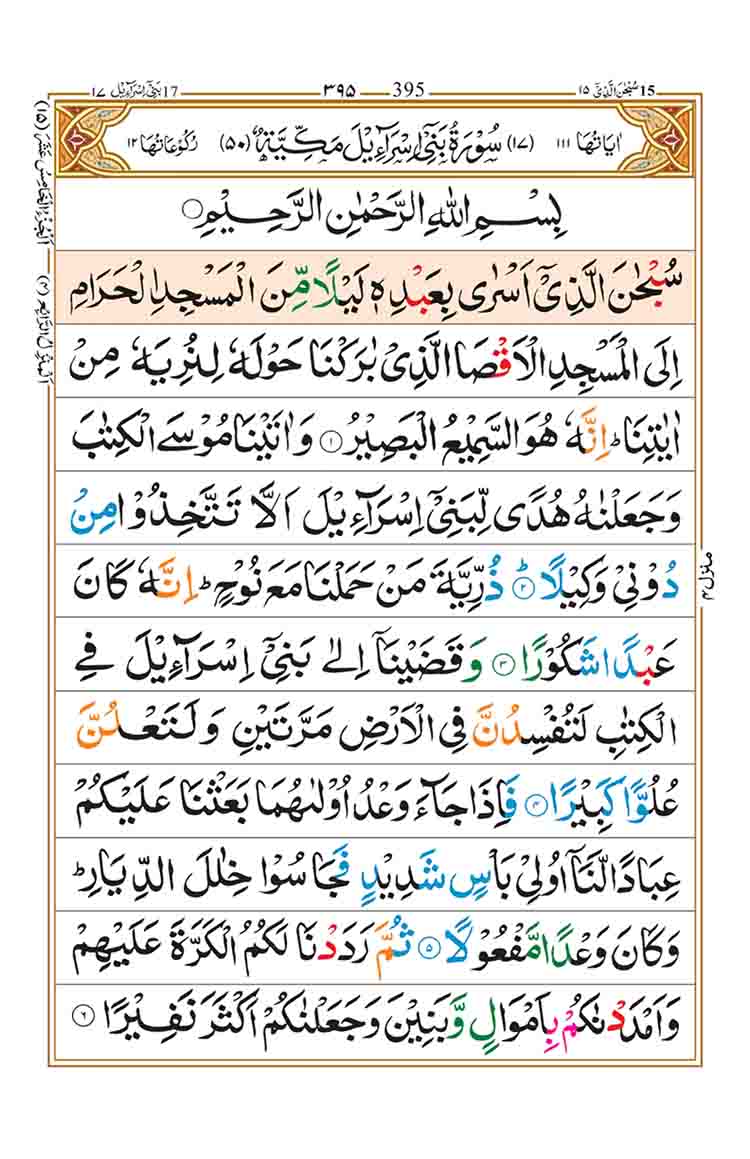 15 سُبْحٰنَ الَّذِیْۤ ١٥
395 ٣٩٥
17 بَنِیْۤ اِسْرَآءِیْل ١٧
اٰیَاتُهَا ١١١ (١٧) سُوْرَةُ بَنِیْۤ اِسْرَآءِیْلَ مَكِّیَّةٌ (٥٠) رُكُوْعَاتُهَا ١٢
بِسْمِ اللّٰهِ الرَّحْمٰنِ الرَّحِیْمِ
سُبْحٰنَ الَّذِیْۤ اَسْرٰی بِعَبْدِهٖ لَیْلًا مِّنَ الْمَسْجِدِ الْحَرَامِ
اِلَی الْمَسْجِدِ الْاَقْصَا الَّذِیْ بٰرَكْنَا حَوْلَهٗ لِنُرِیَهٗ مِنْ
اٰیٰتِنَا ؕ اِنَّهٗ هُوَ السَّمِیْعُ الْبَصِیْرُ ١ وَ اٰتَیْنَا مُوْسَی الْكِتٰبَ
وَ جَعَلْنٰهُ هُدًی لِّبَنِیْۤ اِسْرَآءِیْلَ اَلَّا تَتَّخِذُوْا مِنْ
دُوْنِیْ وَكِیْلًا ٢ ذُرِّیَّةَ مَنْ حَمَلْنَا مَعَ نُوْحٍ ؕ اِنَّهٗ كَانَ
عَبْدًا شَكُوْرًا ٣ وَ قَضَیْنَاۤ اِلٰی بَنِیْۤ اِسْرَآءِیْلَ فِی
الْكِتٰبِ لَتُفْسِدُنَّ فِی الْاَرْضِ مَرَّتَیْنِ وَ لَتَعْلُنَّ
عُلُوًّا كَبِیْرًا ٤ فَاِذَا جَآءَ وَعْدُ اُوْلٰىهُمَا بَعَثْنَا عَلَیْكُمْ
عِبَادًا لَّنَاۤ اُولِیْ بَاْسٍ شَدِیْدٍ فَجَاسُوْا خِلٰلَ الدِّیَارِ ؕ
وَ كَانَ وَعْدًا مَّفْعُوْلًا ٥ ثُمَّ رَدَدْنَا لَكُمُ الْكَرَّةَ عَلَیْهِمْ
وَ اَمْدَدْنٰكُمْ بِاَمْوَالٍ وَّ بَنِیْنَ وَ جَعَلْنٰكُمْ اَكْثَرَ نَفِیْرًا ٦
اَلْجُزْءُ الْخَامِسُ عَشَرَ (١٥)
اَلْمَنْزِلُ الرَّابِعُ (٤)
منزل ٤